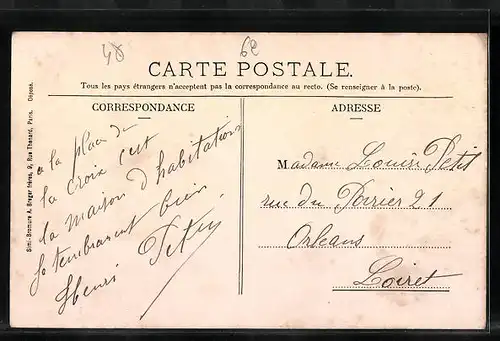 48
62
CARTE POSTALE.
Tous les pays étrangers n'acceptent pas la correspondance au recto. (Se renseigner à la poste).
CORRESPONDANCE
à la place de
la croix c'est
la maison d'habitation
bien
Henri Petit
ADRESSE
Madame Louise Petit
rue du Poirier 21
Orléans
Loiret
Simi-Bromure A. Breger frères, 9, Rue Thénard, Paris. Déposé.